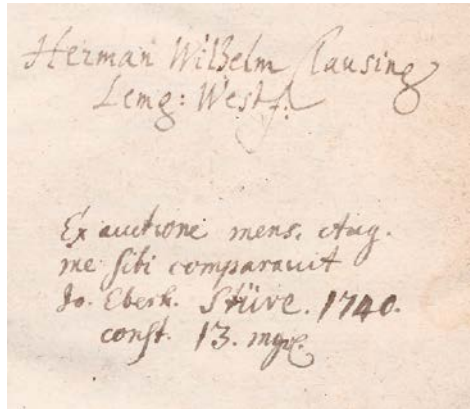 Herman Wilhelm Clausing
Lemg: Westf.
Ex auctione mens. Aug.
me sibi comparavit
Jo. Eberh. Stüve. 1740.
const. 13. mgr.